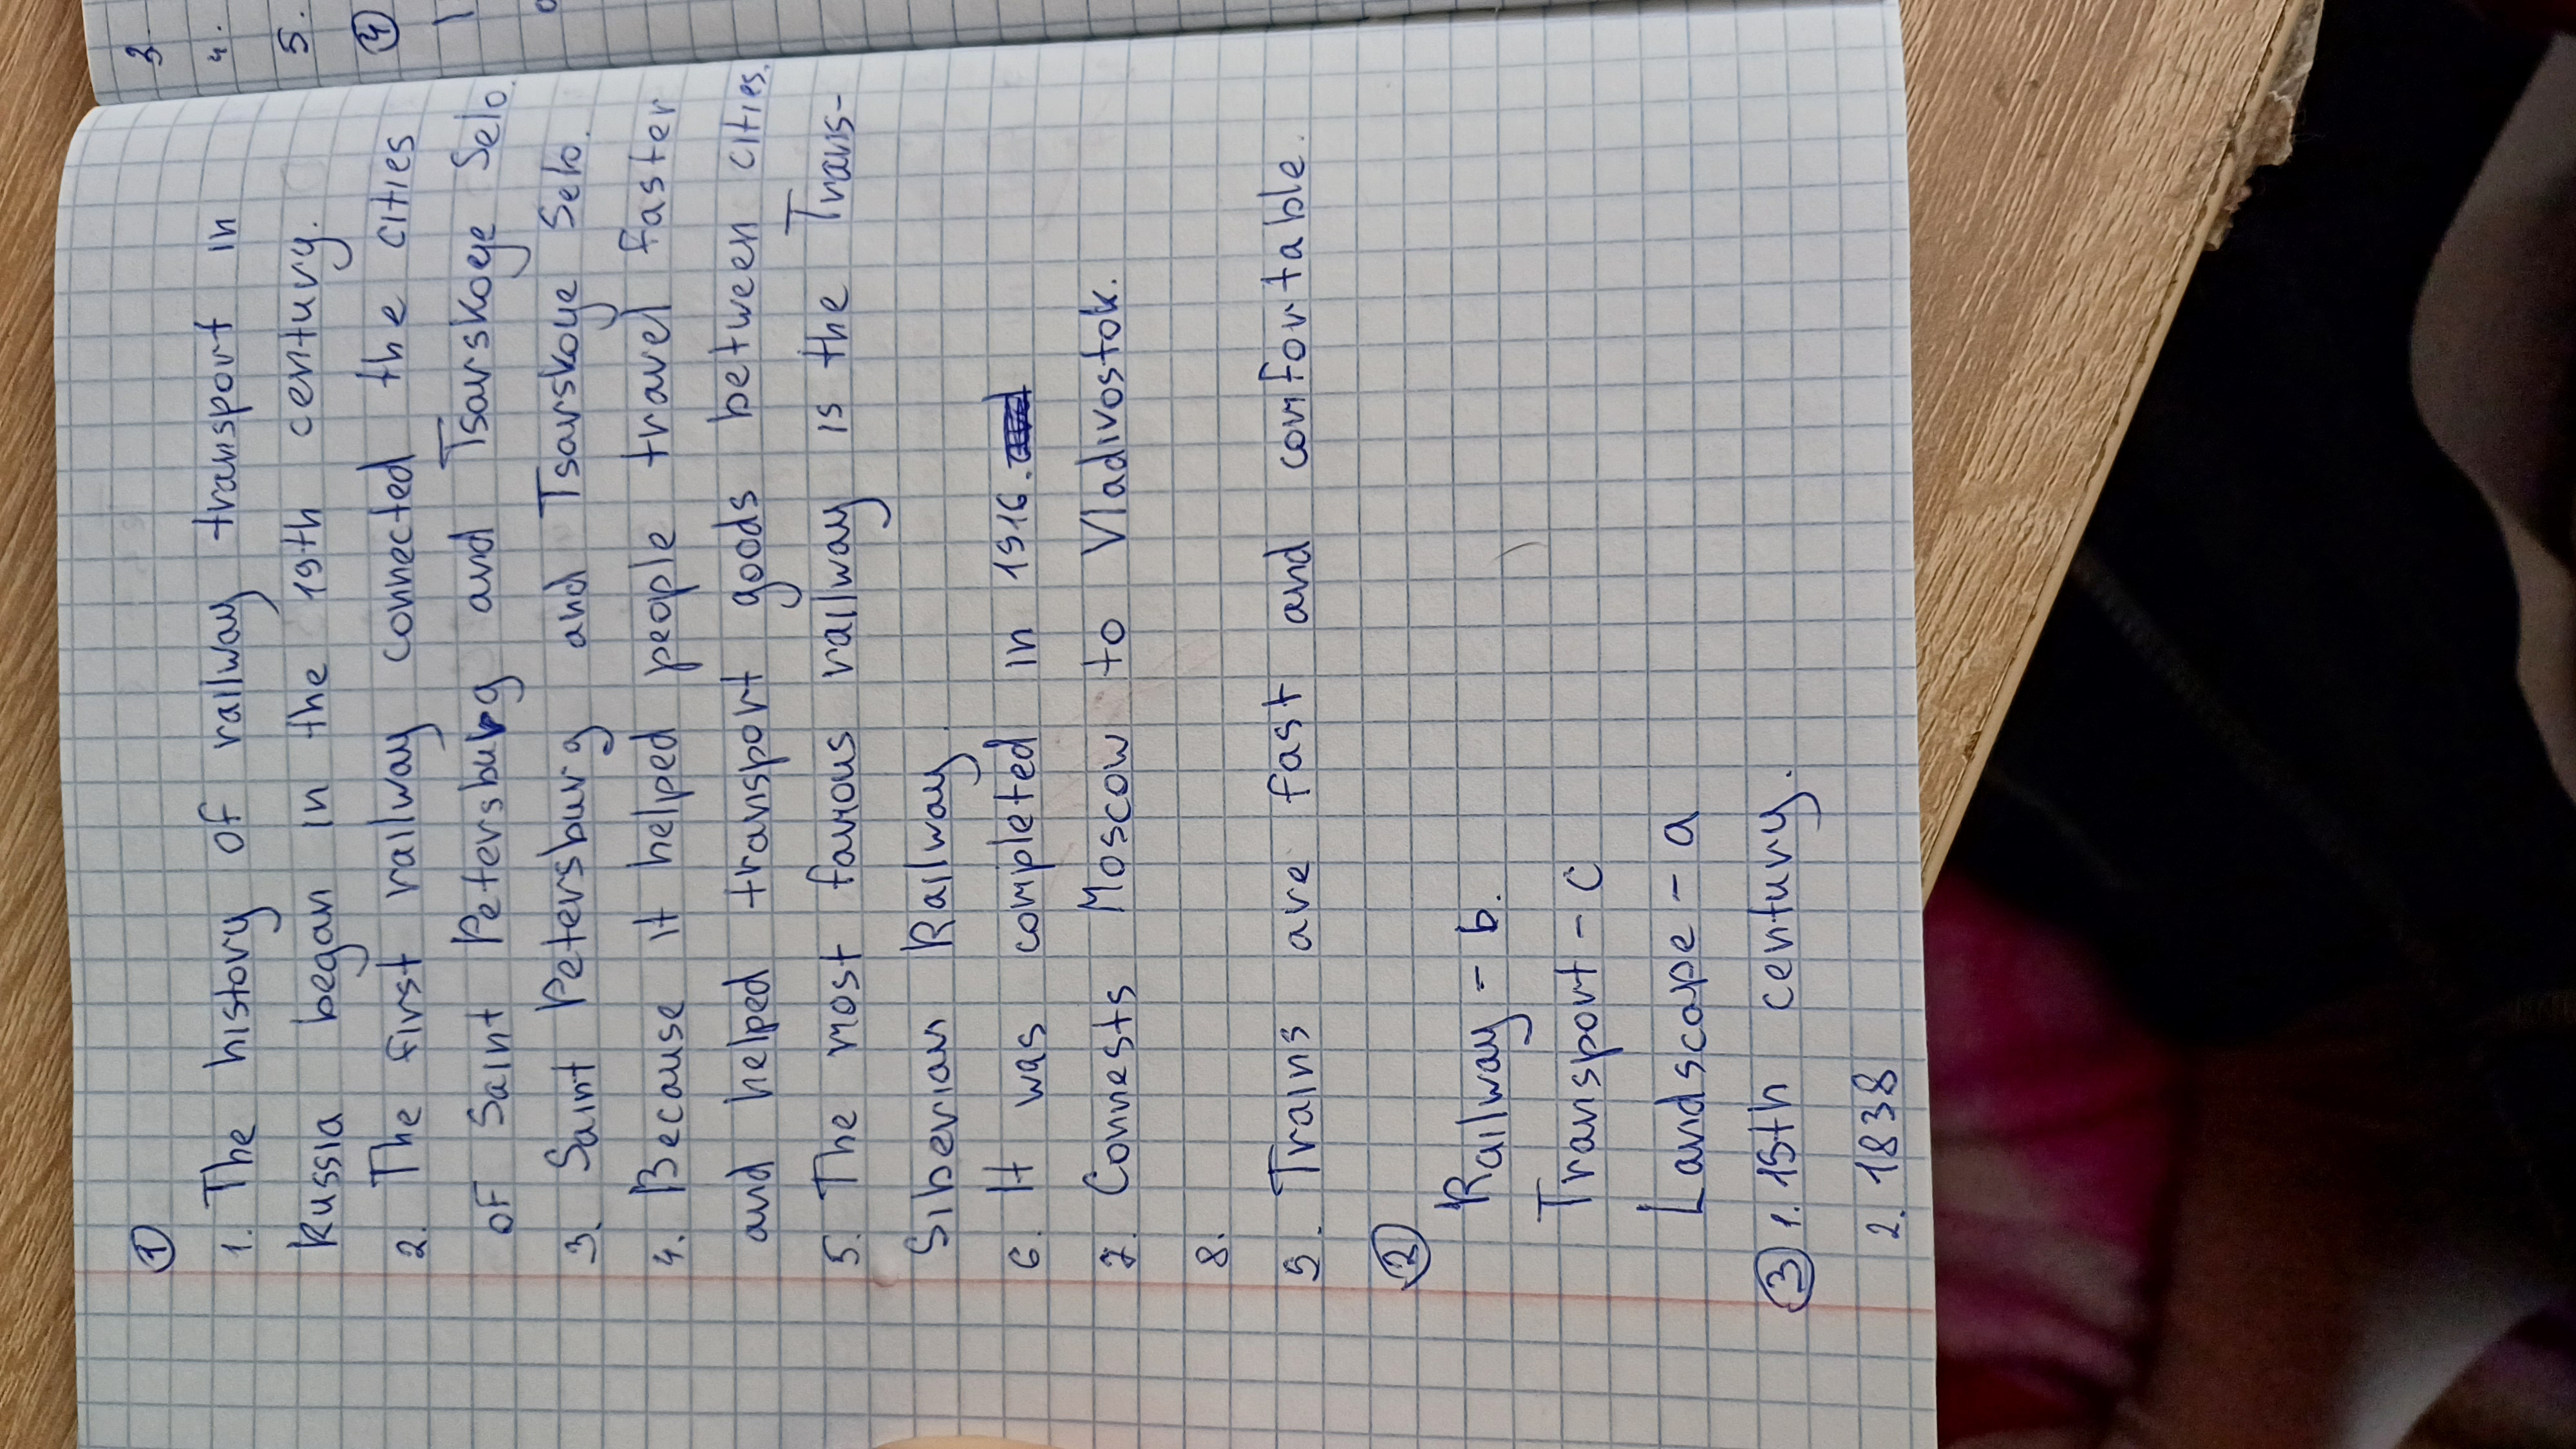 ①
1. The history of railway transport in
Russia began in the 19th century.
2. The first railway connected the cities
of Saint Petersburg and Tsarskoye Selo.
3. Saint Petersburg and Tsarskoye Selo.
4. Because it helped people travel faster
and helped transport goods between cities.
5. The most famous railway is the Trans-
Siberian Railway.
6. It was completed in 1916.
7. Connests Moscow to Vladivostok.
8.
9. Trains are fast and comfortable.
② Railway - b.
Transport - c
Landscape - a
③ 1. 19th century.
2. 1838
3
4.
5.
④